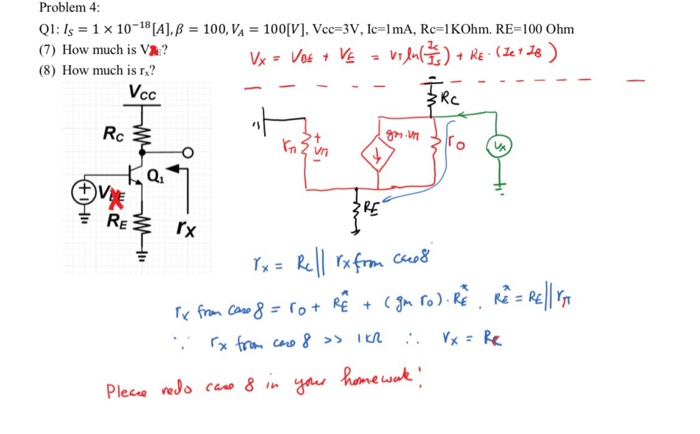 Problem 4:
Q1: I_S = 1 × 10^{-18}[A], β = 100, V_A = 100[V], Vcc=3V, Ic=1mA, Rc=1KOhm. RE=100 Ohm
(7) How much is V?
V_X = V_BE + V_E = V_T ln(I_C/I_S) + R_E · (I_C + I_B)
(8) How much is r_x?
VCC
RC
RC
gm·vπ
rπ
+
vπ
-
ro
VX
Q1
+
-
V
RE
rX
RE
r_x = Rc || r_x from case 8
r_x from case 8 = ro + R_E* + (gm ro)·R_E*, R_E* = RE || rπ
∵ r_x from case 8 >> 1KΩ ∴ r_x = Rc
Please redo case 8 in your homework!